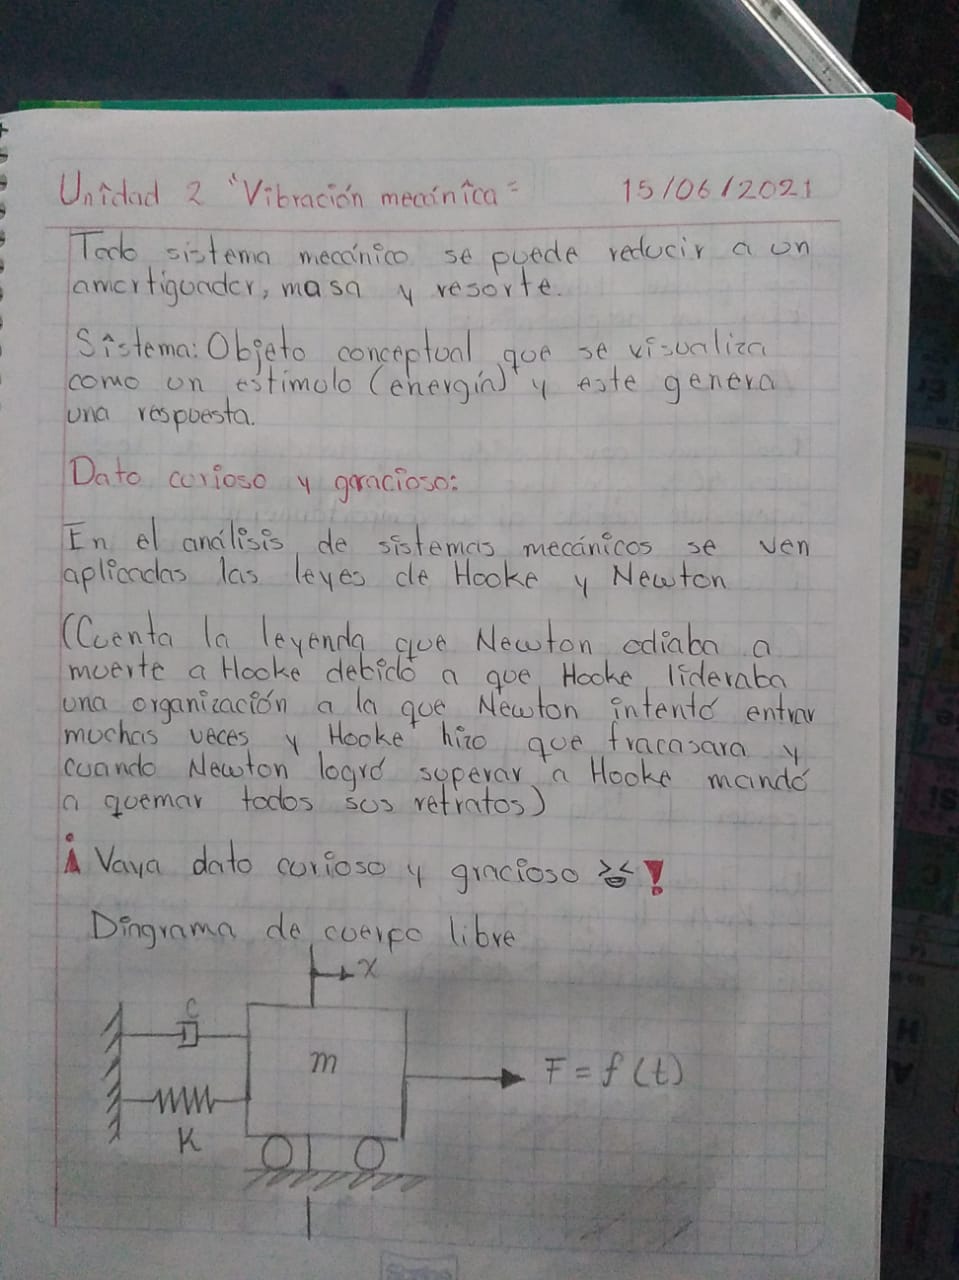 Unidad 2 "Vibración mecánica"
15/06/2021
Todo sistema mecánico se puede reducir a un
amortiguador, masa y resorte.
Sistema: Objeto conceptual que se visualiza
como un estimulo (energía) y este genera
una respuesta.
Dato curioso y gracioso:
En el análisis de sistemas mecánicos se ven
aplicadas las leyes de Hooke y Newton
(Cuenta la leyenda que Newton odiaba a
muerte a Hooke debido a que Hooke lideraba
una organización a la que Newton intentó entrar
muchas veces y Hooke hizo que fracasara y
cuando Newton logró superar a Hooke mandó
a quemar todos sus retratos)
¡Vaya dato curioso y gracioso !
Diagrama de cuerpo libre
x
c
m
F = f(t)
K